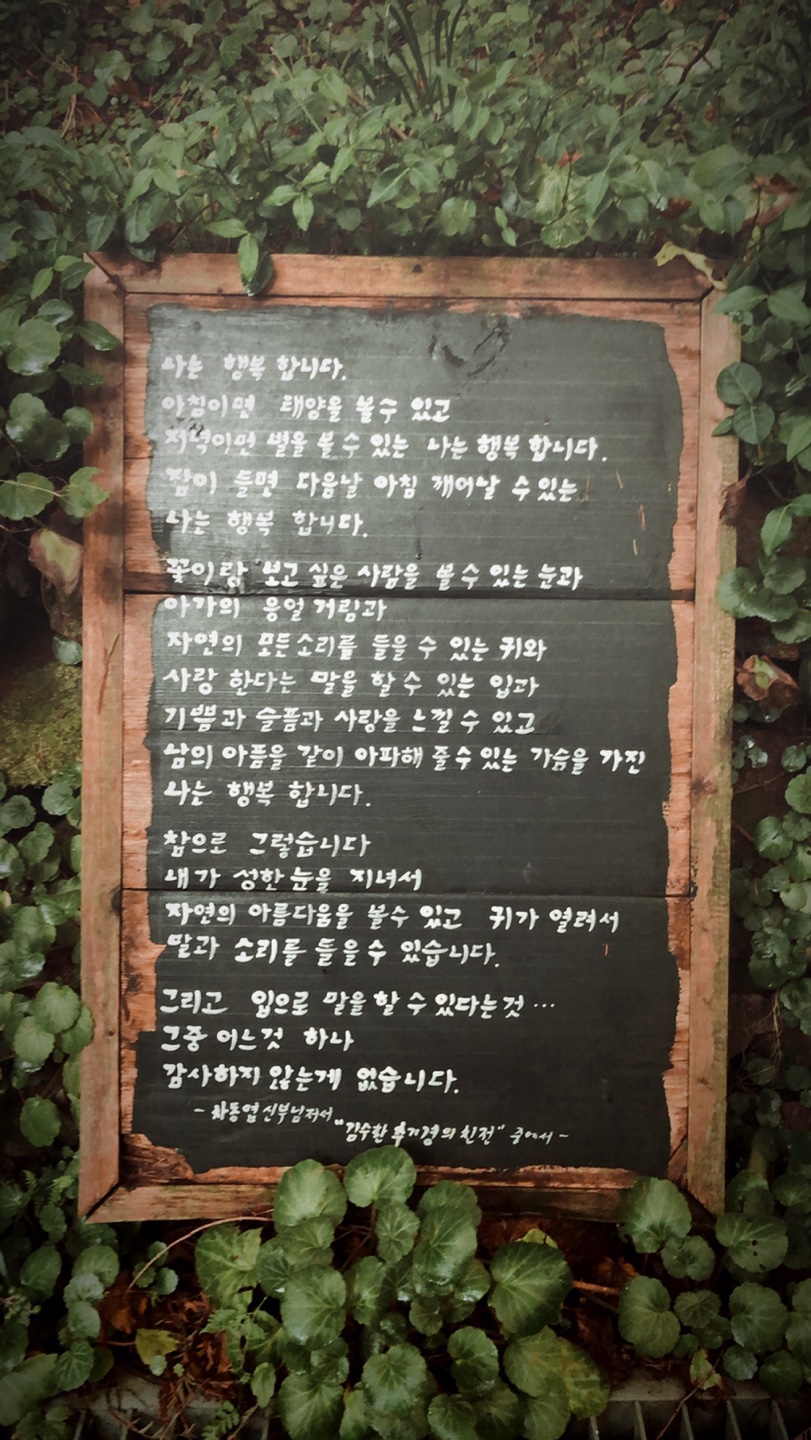 나는 행복 합니다.
아침이면 태양을 볼수 있고
저녁이면 별을 볼 수 있는 나는 행복 합니다.
잠이 들면 다음날 아침 깨어날 수 있는
나는 행복 합니다.
꽃이랑 보고 싶은 사람을 볼 수 있는 눈과
아가의 옹얼 거림과
자연의 모든 소리를 들을 수 있는 귀와
사랑 한다는 말을 할 수 있는 입과
기쁨과 슬픔과 사랑을 느낄 수 있고
남의 아픔을 같이 아파해 줄 수 있는 가슴을 가진
나는 행복 합니다.
참으로 그렇습니다
내가 성한 눈을 지녀서
자연의 아름다움을 볼수 있고 귀가 열려서
말과 소리를 들을 수 있습니다.
그리고 입으로 말을 할 수 있다는 것 ...
그중 어느것 하나
감사하지 않는게 없습니다.
- 차동엽 신부님저서
"김수환 추기경의 친전" 중에서 -